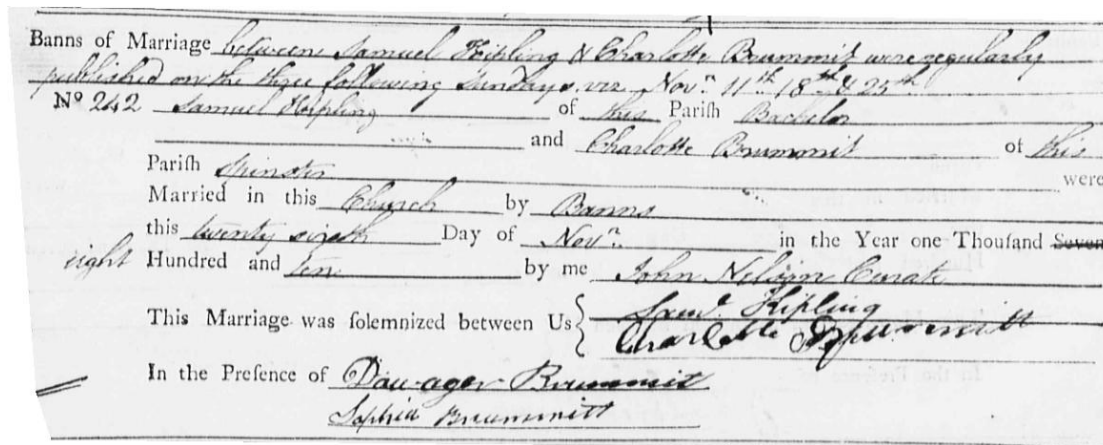 Banns of Marriage between Samuel Kipling & Charlotte Brummit were regularly
published on the three following Sundays viz Novr. 11th 18th & 25th
No 242 Samuel Kipling of this Parish Bachelor
and Charlotte Brummit of this
Parish Spinster were
Married in this Church by Banns
this twenty sixth Day of Novr. in the Year one Thousand Seven
eight Hundred and ten by me John Nelson Curate
This Marriage was solemnized between Us Saml. Kipling
Charlotte Brummitt
In the Presence of Brummit
Sophia Brummitt